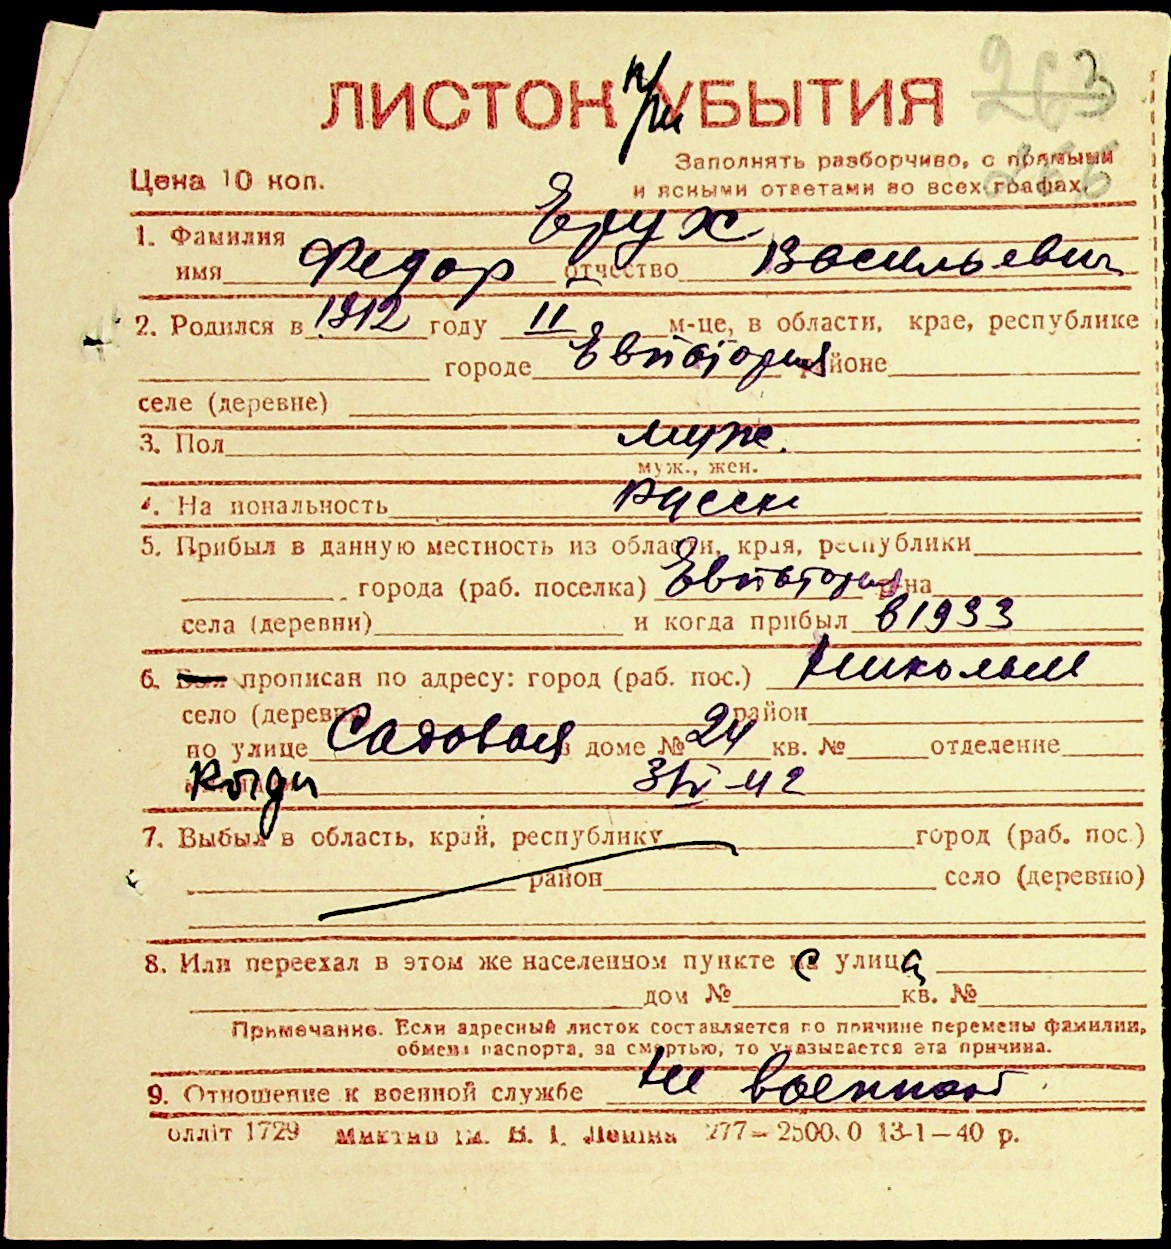 263
ЛИСТОК при УБЫТИЯ
266
Заполнять разборчиво, с прямыми
Цена 10 коп.
и ясными ответами во всех графах.
1. Фамилия Ерух
имя Федор отчество Васильевич
2. Родился в 1912 году II м-це, в области, крае, республике
городе Евпатория районе
селе (деревне)
3. Пол муж.
муж., жен.
4. Национальность русск
5. Прибыл в данную местность из области, края, республики
города (раб. поселка) Евпатория р-на
села (деревни) и когда прибыл в 1933
6. Был прописан по адресу: город (раб. пос.)
село (деревня) район
по улице Садовая в доме № 24 кв. № отделение
Когда 3/IV-42
7. Выбыл в область, край, республику город (раб. пос.)
район село (деревню)
8. Или переехал в этом же населенном пункте с улицы
дом № кв. №
Примечание. Если адресный листок составляется по причине перемены фамилии,
обмена паспорта, за смертью, то указывается эта причина.
9. Отношение к военной службе Не военнооб
олліт 1729 ім. В. І. Леніна 277—2500.0 13-1—40 р.